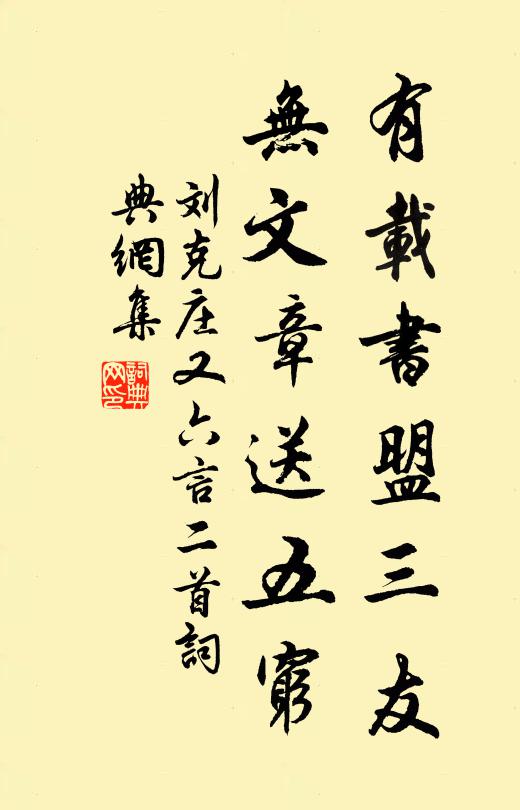 有載書盟三友
無文章送五窮
刘克庄又六言二首詞
典網集
詞典網印